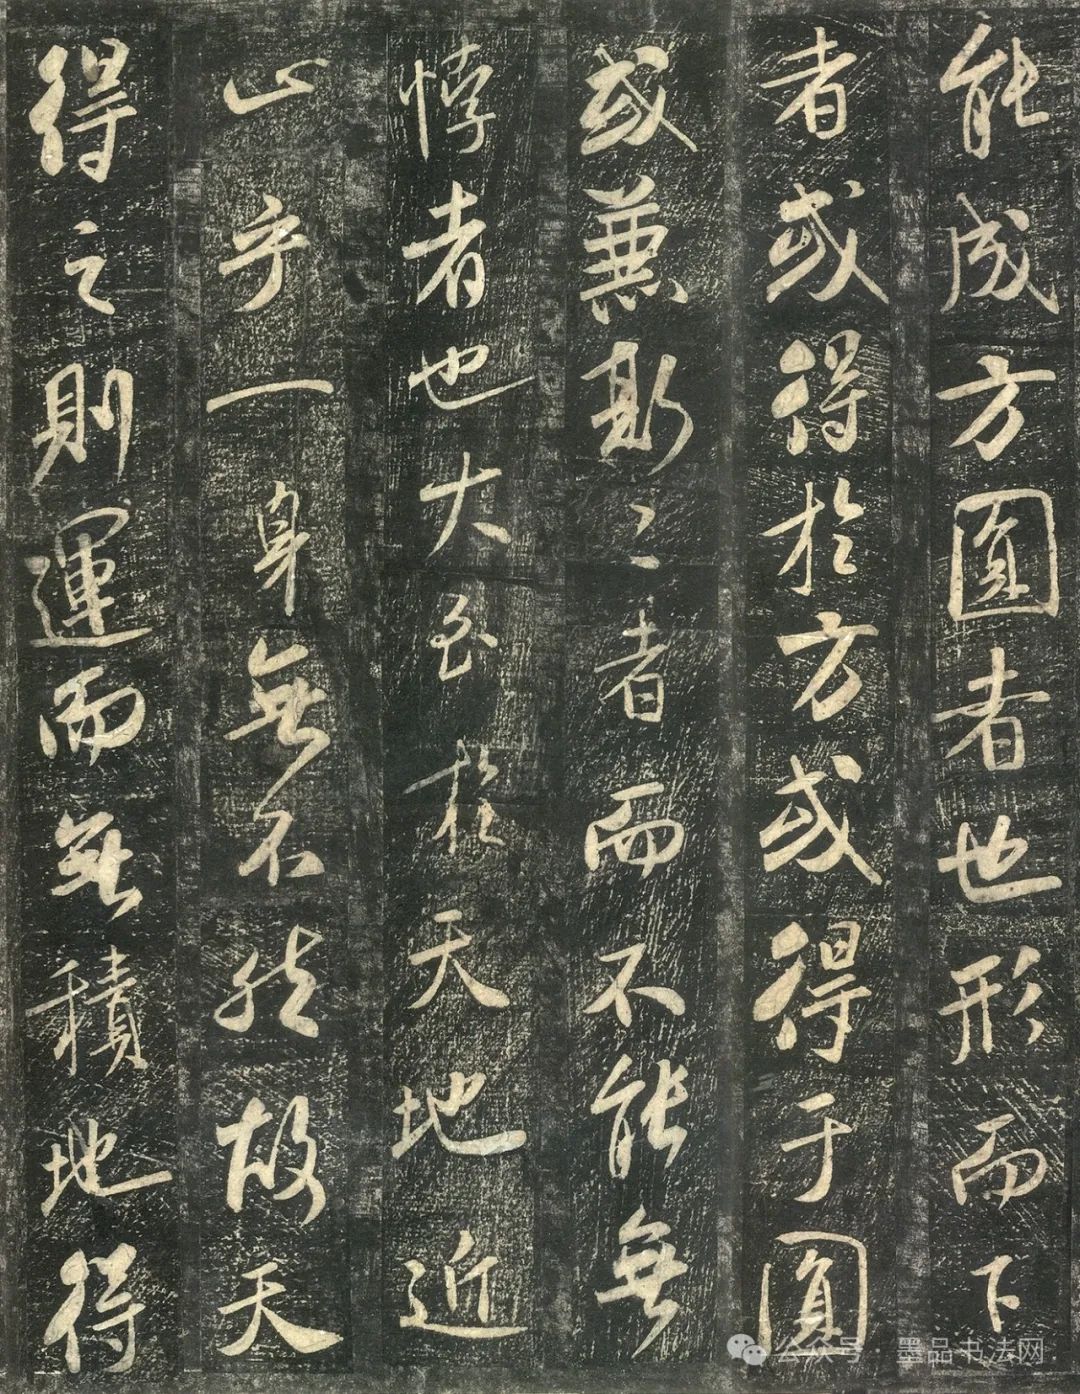 能成方圓者也形而下
者或得於方或得于圓
或兼斯二者而不能無
悖者也大至於天地近
止乎一身無不然故天
得之則運而無積地得
公众号 · 墨品书法网